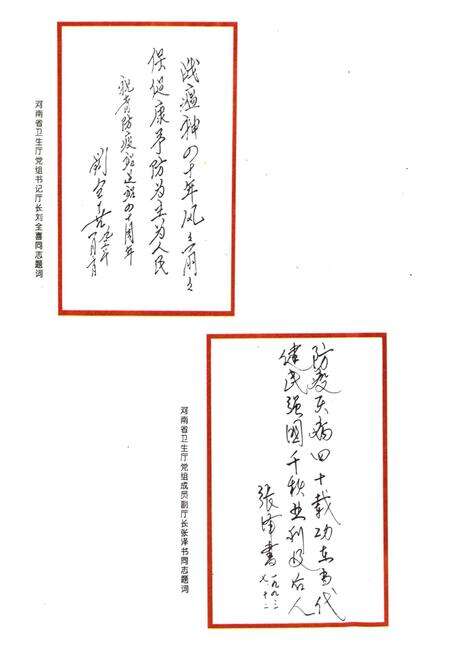 战瘟神四十年风风雨雨
保健康予防为主为人民
祝贺防疫站建站四十周年
刘全喜
河南省卫生厅党组书记厅长刘全喜同志题词
防疫灭病四十载功在当代
健民强国千秋业利及后人
张泽书
一九九三
河南省卫生厅党组成员副厅长张泽书同志题词